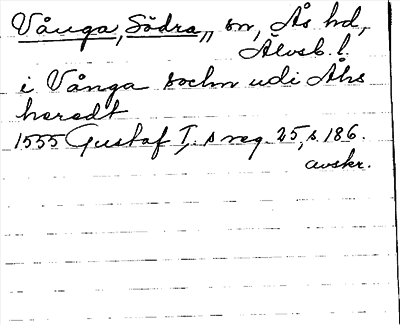 Vånga, Södra, sn, Ås hd,
Älvsb. l.
i Vånga sochn udi Åhs
heredt
1555 Gustaf I,s reg. 25, s. 186.
avskr.